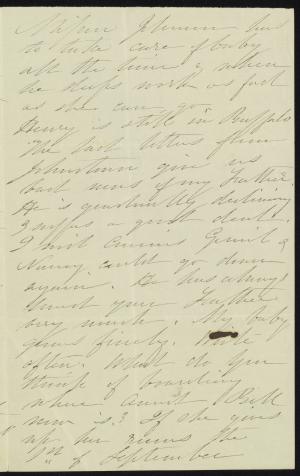 to take care of baby
all the time & when
he sleeps work as fast
as she can go.
Henry is still in Buffalo
The last letters from
Johnstown give us
bad news of my Father.
He is gradually declining
& suffers a great deal.
I wish Cousins Gerrit &
Nancy could go down
again. He has always
your Father
very much. My baby
grows finely. Write
often. What do you
think of boarding
where Aunt
now is? If she gives
up her rooms the
1st of September